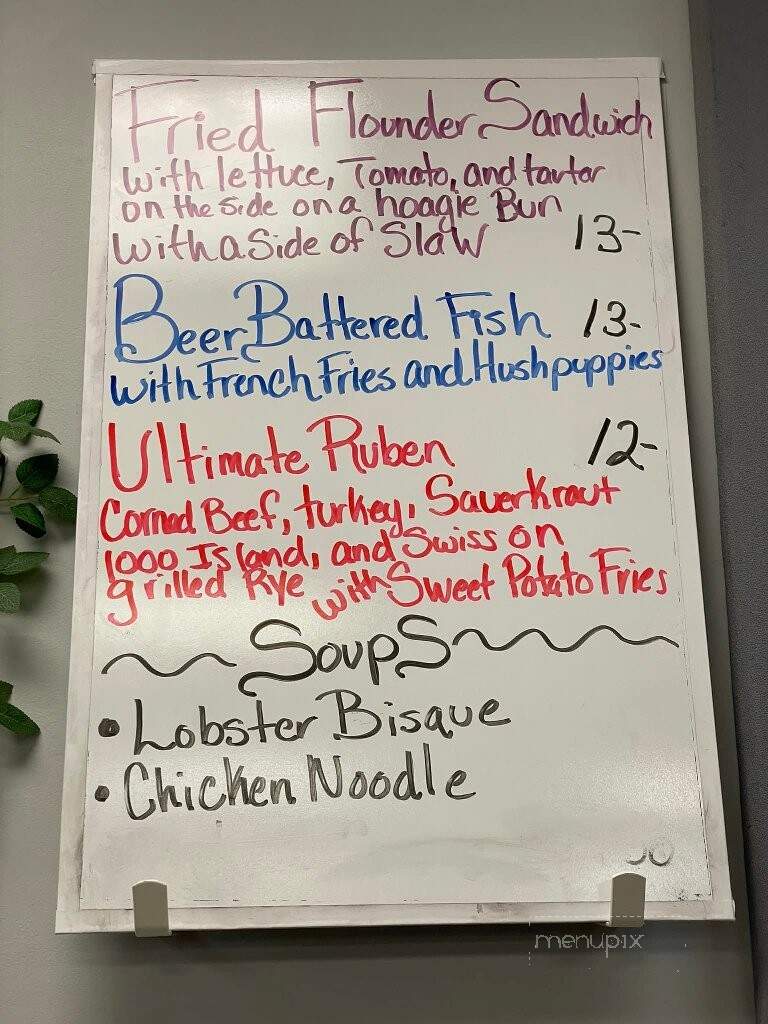 Fried Flounder Sandwich
with lettuce, Tomato, and tartar
on the side on a hoagie Bun
with a side of Slaw 13-
Beer Battered Fish 13-
with French Fries and Hushpuppies
Ultimate Ruben 12-
Corned Beef, turkey, Sauerkraut
1000 Island, and Swiss on
grilled Rye with Sweet Potato Fries
Soups
• Lobster Bisque
• Chicken Noodle
menupix